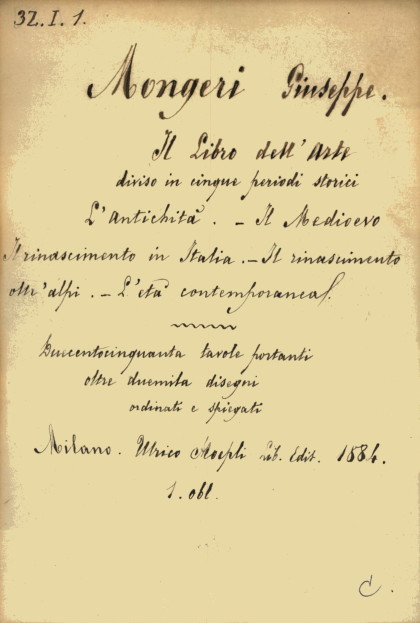 32. I. 1.
Mongeri Giuseppe.
Il Libro dell'Arte
diviso in cinque periodi storici
L'Antichità. – Il Medioevo
Il rinascimento in Italia. – Il rinascimento
oltr'alpi. – L'età contemporanea.
Duecentocinquanta tavole portanti
oltre duemila disegni
ordinati e spiegati
Milano. Ulrico Hoepli Lib. Edit. 1884.
1. obl.
C.